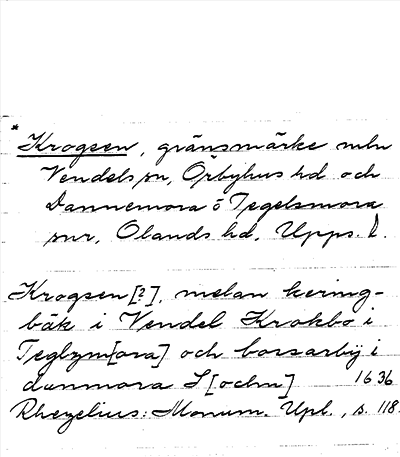 * Krogsen, gränsmärke mln
Vendels sn, Örbyhus hd och
Dannemora o Tegelsmora
snr, Olands hd, Upps. l.
Krogsen [?], melan kering-
bäk i Vendel Krokbo i
Teglzm[ora] och borsarbÿ i
danmora S[ochn] 1636
Rhezelius: Monum. Upl., s. 118.